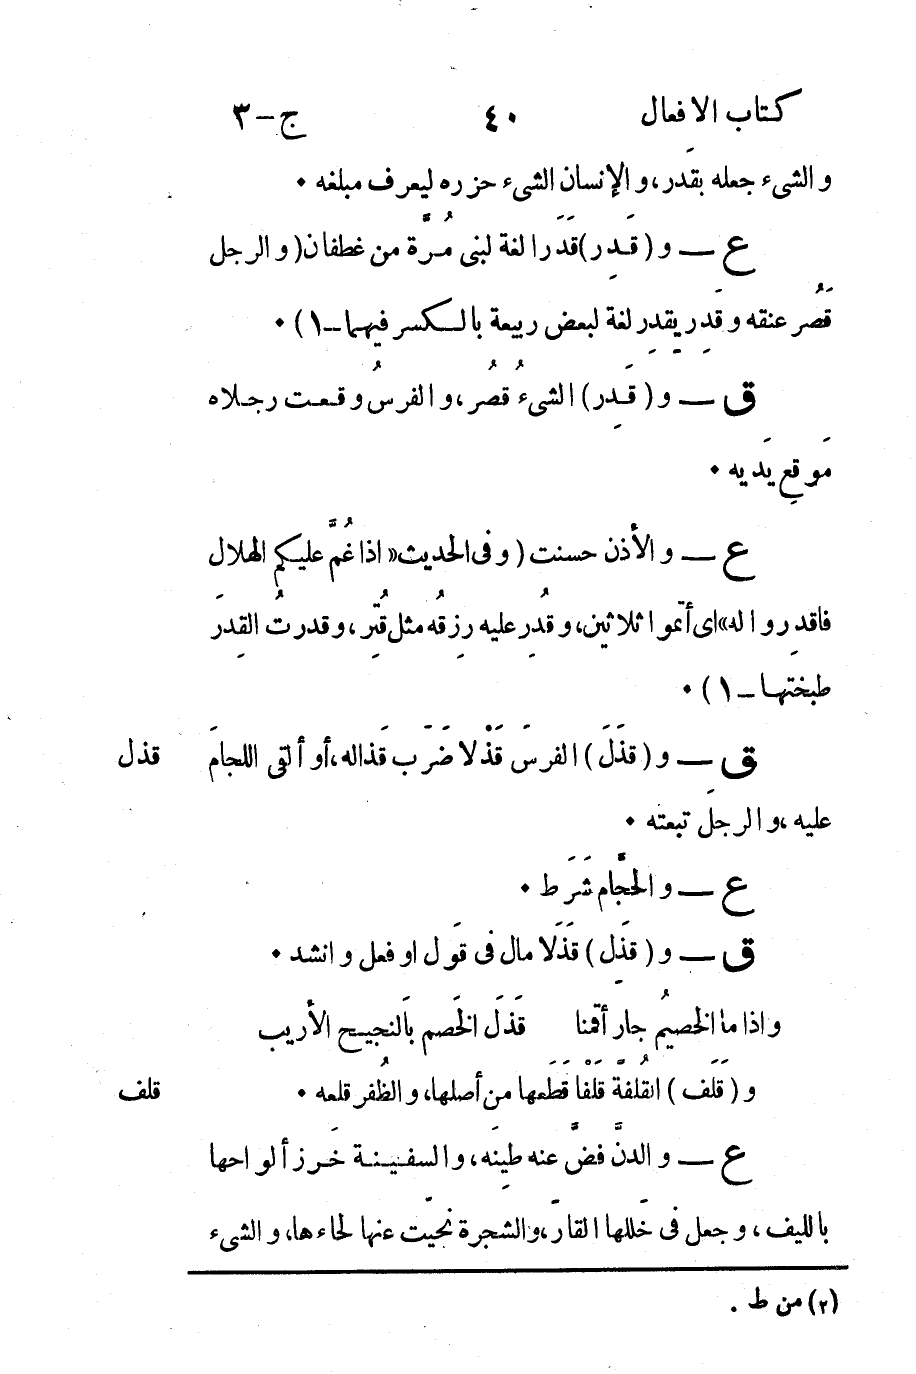 كتاب الافعال ٤٠ ج-٣
و الشىء جعله بقَدر، و الإنسان الشىء حزره ليعرف مبلغه ٠
ع — و ( قَدِر)قَدَرا لغة لبنى مُرَّة من غطفان( و الرجل
قَصُر عنقه و قَدِر يِقدِر لغة لبعض ربيعة بالكسر فيهما-١ ) ٠
ق — و ( قَدِر ) الشىءُ قصُر، و الفرسُ وقعت رجلاه
مَوقِع يَديه ٠
ع — و الأذن حسنت ( و فى الحديث« اذا غُمَّ عليكم الهلال
فاقدِروا له» اى أتموا ثلاثين، و قُدِر عليه رزقُه مثل قُتِّر، و قدرتُ القِدرَ
طبختها - ١ ) ٠
ق — و ( قَذَلَ ) الفرسَ قَذْلا ضَرَب قَذاله، أو ألقى اللجامَ قذل
عليه، و الرجلَ تبعته ٠
ع — و الحَجَّام شَرَط ٠
ق — و ( قَذِل ) قَذَلا مال فى قَول او فعل و انشد ٠
و اذا ما الخصيمُ جار أقمنا قَذَلَ الخَصم بالنجيح الأريب
و ( قَلَفَ ) القُلفةَ قَلْفا قَطَعها من أصلها، و الظُفر قلعه ٠ قلف
ع — و الدنَّ فضَّ عنه طِينَه، و السفينة خَرز ألواحها
بالليف، و جعل فى خَللها القارَ، و الشجرة نحيّت عنها لحاءها، و الشىء
(٢) من ط .